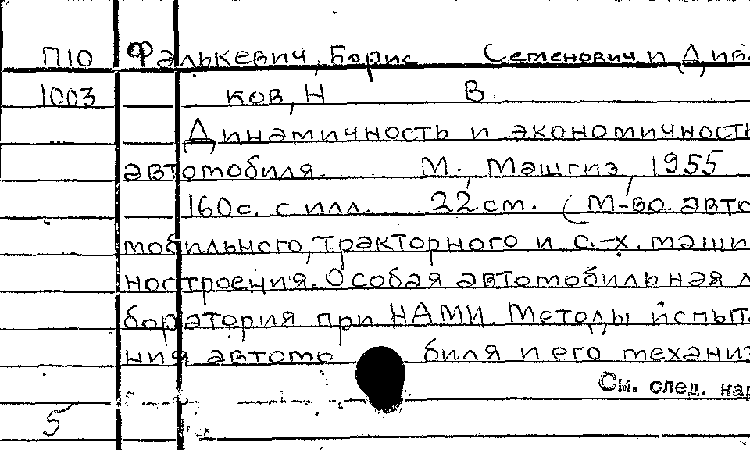 П10 Фалькевич, Борис Семенович и Див
1003 ков, Н В
Динамичность и экономичность
автомобиля. М., Машгиз, 1955
160с. с илл. 22 см. (М-во авто
мобильного, тракторного и с.-х. маши
ностроения. Особая автомобильная л
боратория при НАМИ Методы испыт
ния автомо биля и его механиз
См. след. кар
5